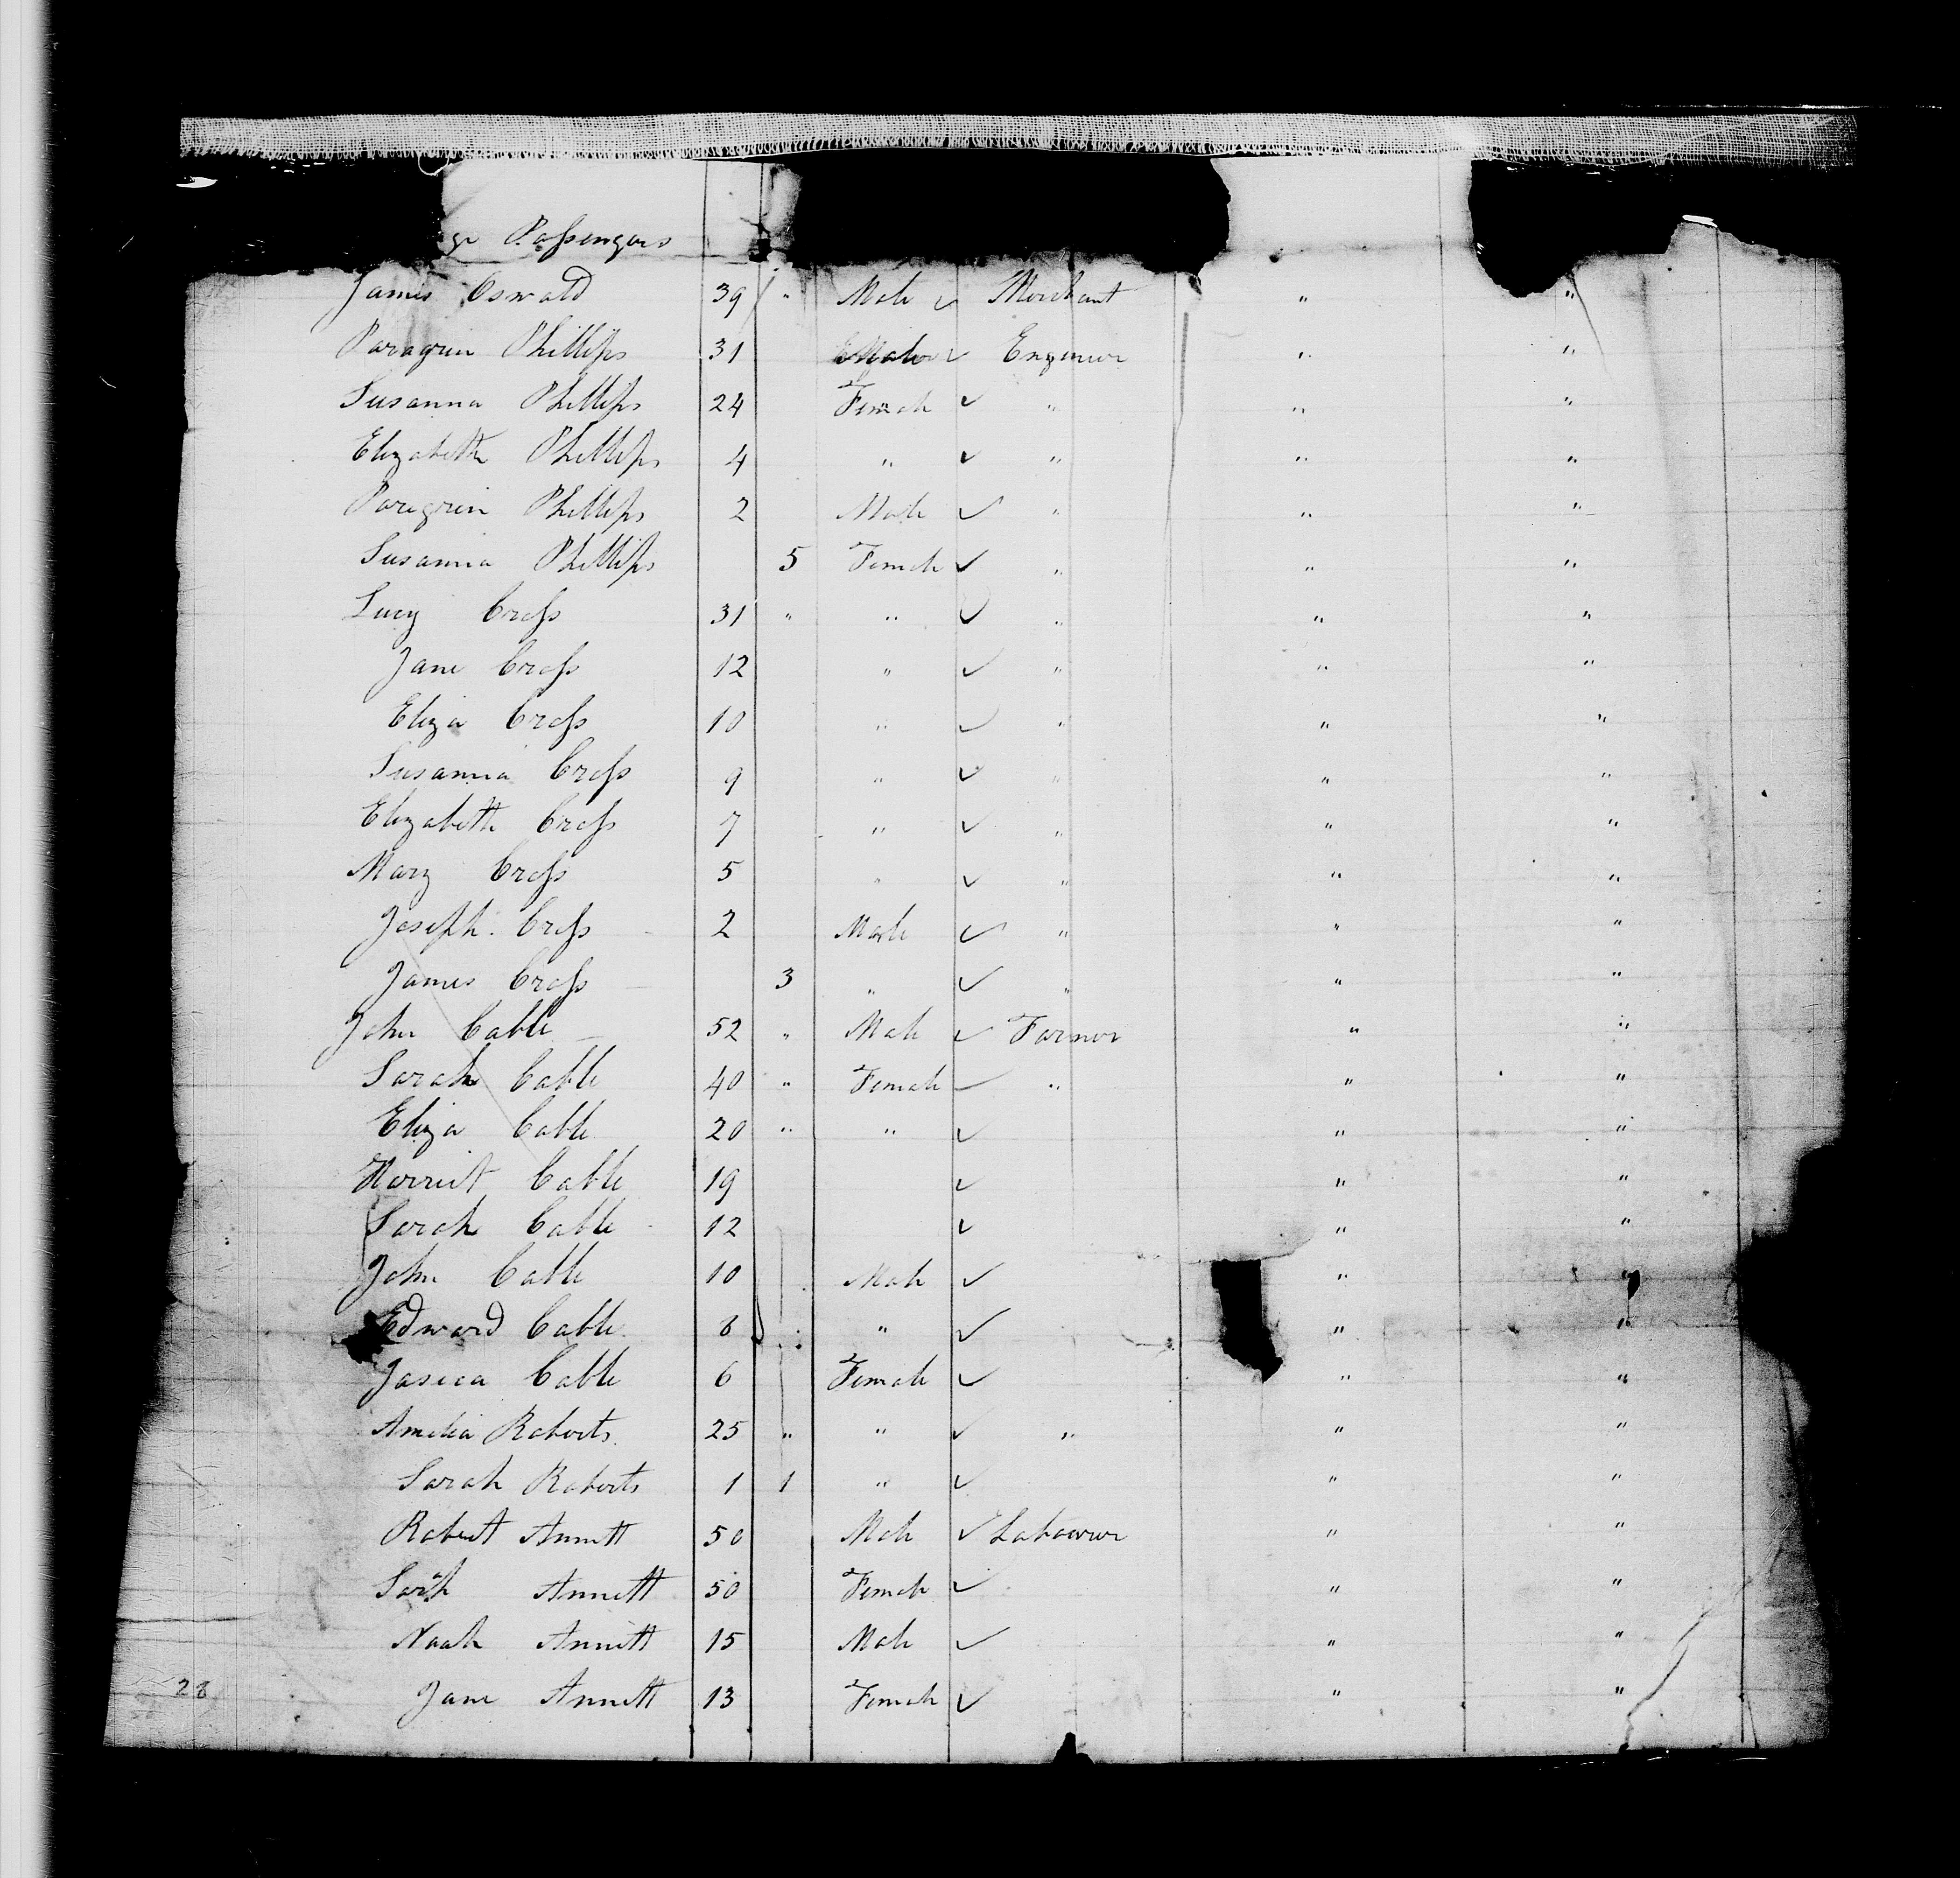 ge Passengers
James Oswald 39 " Male ✓ Merchant " "
Paragrin Phillips 31 Male ✓ Enginur " "
Susanna Phillips 24 Female ✓ " " "
Elizabeth Phillips 4 " ✓ " " "
Paregrin Phillips 2 Male ✓ " " "
Susanna Phillips 5 Female ✓ " " "
Lucy Cross 31 " " ✓ " " "
Jane Cross 12 " ✓ " " "
Eliza Cross 10 " ✓ " " "
Susanna Cross 9 " ✓ " " "
Elizabeth Cross 7 " ✓ " " "
Mary Cross 5 " ✓ " " "
Joseph Cross 2 Male ✓ " " "
James Cross 3 " ✓ " " "
John Cable 52 " Male ✓ Farmer " "
Sarah Cable 40 " Female ✓ " " "
Eliza Cable 20 " " ✓ " "
Harriet Cable 19 ✓ " "
Sarah Cable 12 ✓ " "
John Cable 10 Male ✓ " "
Edward Cable 8 " ✓ " "
Jaseca Cable 6 Female ✓ " "
Amelia Roberts 25 " " ✓ " " "
Sarah Roberts 1 1 " ✓ " "
Robert Annett 50 Male ✓ Labourer " "
Sarah Annett 50 Female ✓ " "
Noah Annett 15 Male ✓ " "
Jane Annett 13 Female ✓ " "
28